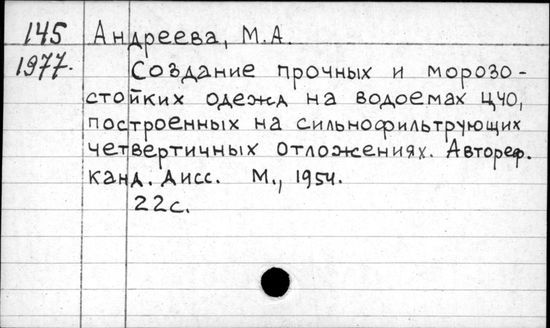 145 Андреева, М.А.
1977. Создание прочных и морозо-
стойких одежд на водоемах ЦЧО,
построенных на сильнофильтрующих
четвертичных отложениях. Автореф.
канд. дисс. М., 1954.
22с.